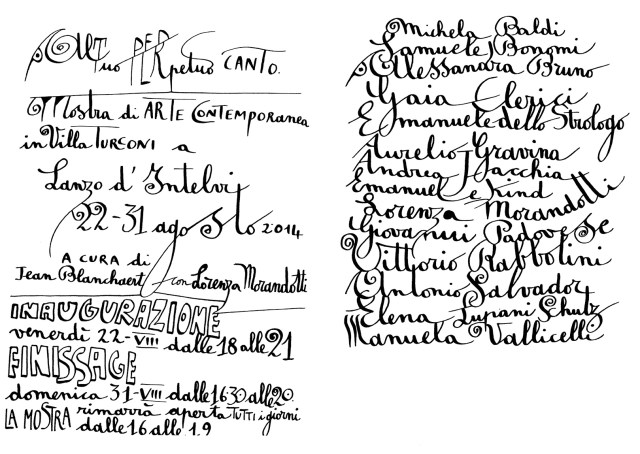 Al Tuo PERpetuo CANTO.
Mostra di ARTE CONTEMPORANEA
in Villa TURCONI a
Lanzo d'Intelvi
22-31 agosto 2014
A CURA di
Jean Blanchaert con Lorenza Morandotti
INAUGURAZIONE
venerdì 22-VIII dalle 18 alle 21
FINISSAGE
domenica 31-VIII dalle 16.30 alle 20
LA MOSTRA rimarrà aperta TUTTI i giorni
dalle 16 alle 19
Michela Baldi
Samuele Bonomi
Alessandra Bruno
Gaia Clerici
Emanuele dello Strologo
Aurelio Gravina
Andrea Jacchia
Emanuele Kind
Lorenza Morandotti
Giovanni Padovese
Vittorio Rabbolini
Antonio Salvador
Elena Lupani Schutz
Manuela Vallicelli